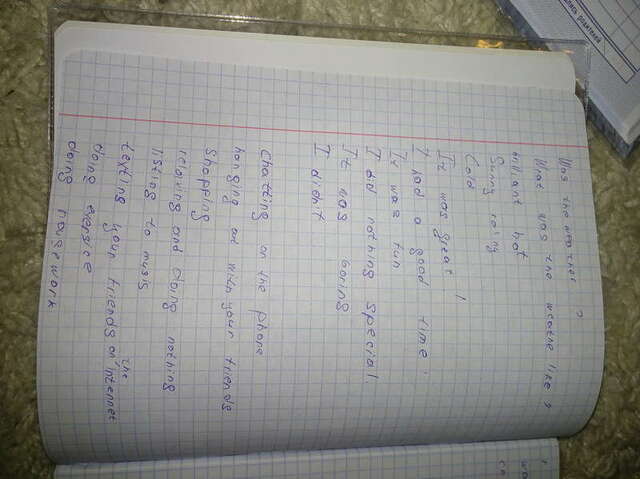 Was the weather ?
Wat was the weathe like ?
brillant hot
Suny rainy
Cold
It was great !
I had a good time !
It was fun
I did nothing special
It was boring
I didnt
Chatting on the phone
hanging out with your friends
Shopping
relaxing and doing nothing
listing to music
texting your friends on the internet
doing exersice
doing housework
родителей